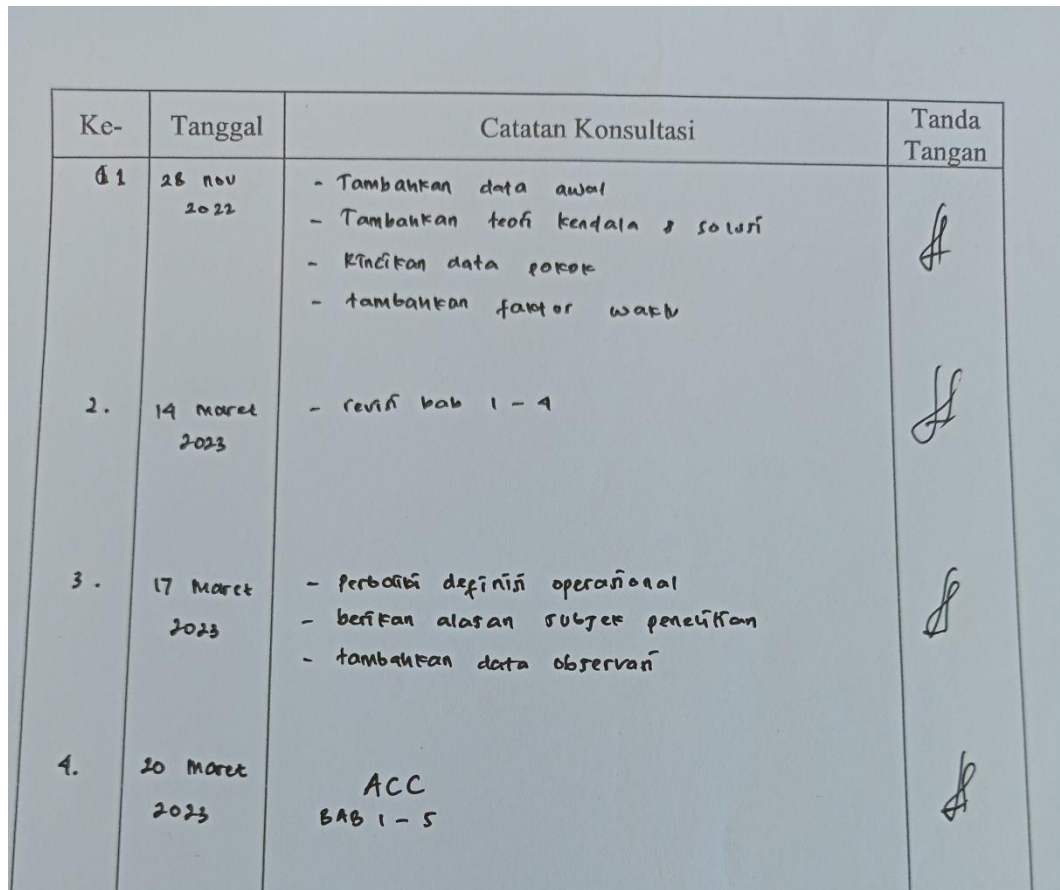 Ke- Tanggal Catatan Konsultasi Tanda Tangan
1 28 nov 2022
- Tambahkan data awal
- Tambahkan teori kendala & solusi
- Rincikan data pokok
- tambahkan faktor waktu
2. 14 maret 2023
- revisi bab 1 - 4
3. 17 Maret 2023
- Perbaiki definisi operasional
- berikan alasan subjek penelitian
- tambahkan data observasi
4. 20 Maret 2023
ACC
BAB 1 - 5